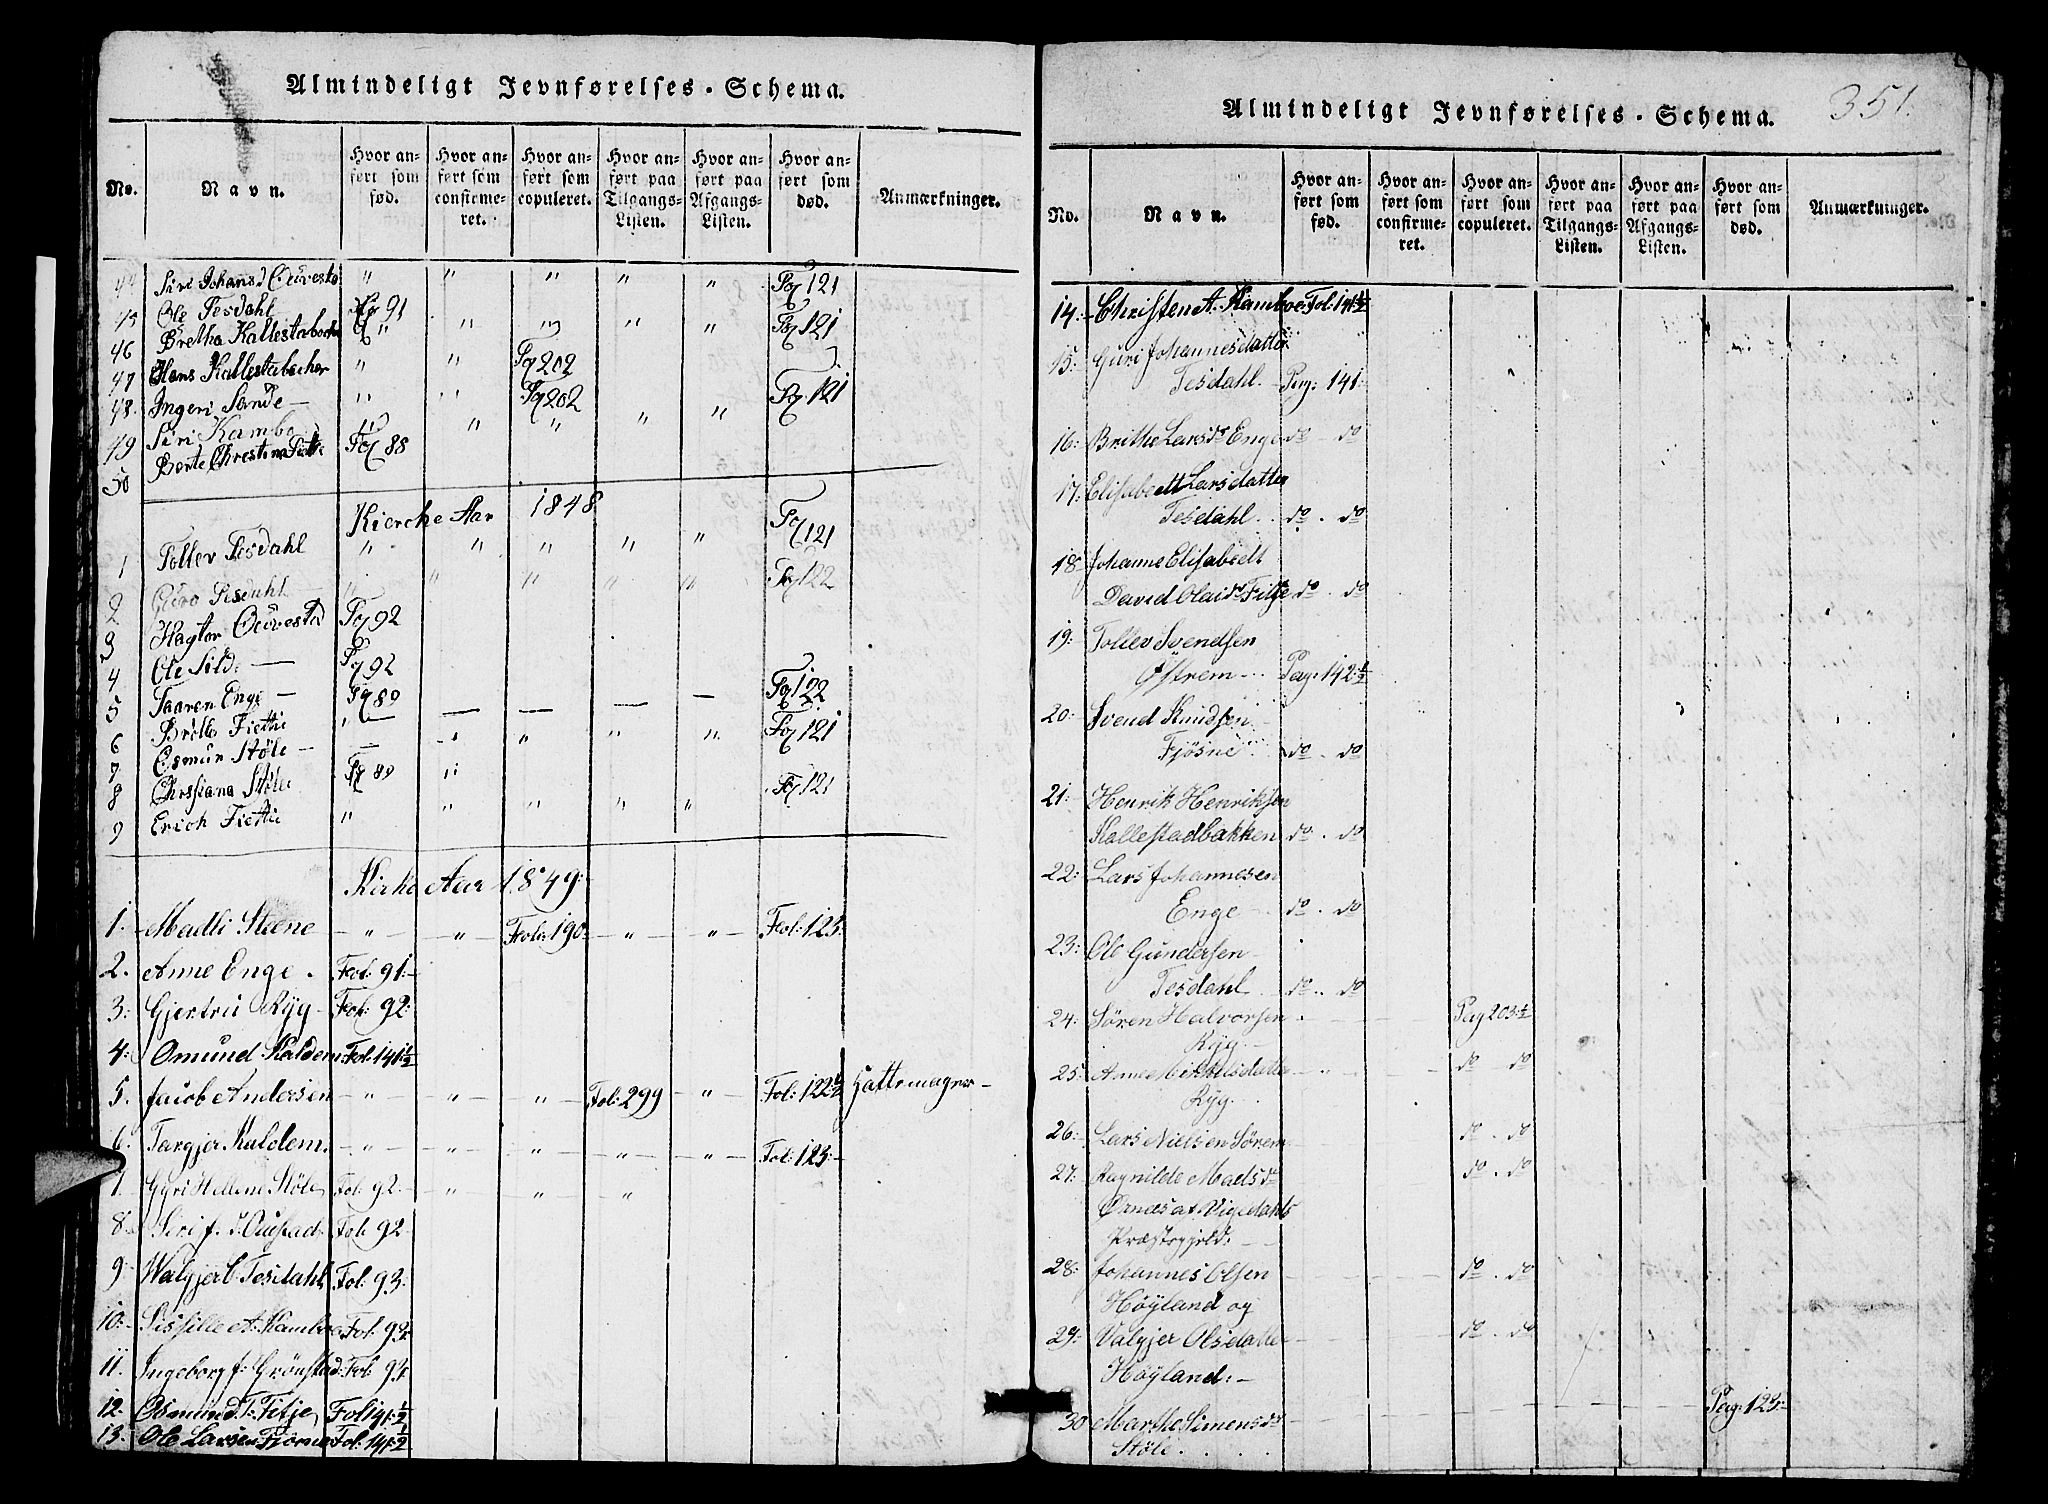 Almindeligt Jevnførelses-Schema.
No. Navn. Hvor anført som fød. Hvor anført som confirmeret. Hvor anført som copuleret. Hvor anført paa Tilgangs-Listen. Hvor anført paa Afgangs-Listen. Hvor anført som død. Anmærkninger.
44 Siri " " " " " Pg 121
45 Ole Tesdahl Pg 91
46 Bretha " " " " " Pg 121
47 Hans " " Pg 202
48. Ingeri Sande — " " Pg 202
49 Siri Kambo " " " " " Pg 121
50 Berte Pag 88
Kierche Aar 1848
1 Tollev Tesdahl " " " " " Pag 121
2 Guro Tesdahl " " " " " Pag 122
3 Pag 92
4 Ole — Pg 92
5 Taaren Enge — Pg 89
6 Fiettie " — — — — — Pag 122
7 Esmun Støle — — " " " " Pag 121
8 Støle Pg 89 "
9 Erich Fiettie " " " " " Pag 121
Kirke Aar 1849:
1. Madli Steene — " — " — Folio 190: — " — " — Fol: 123:
2. Anne Enge . Fol: 91:—
3: Gjertru Ryg — Fol: 92:
4: Omund Kaldem: Fol: 141½
5. Jacob Andersen — " — " — " — Fol: 299 — " — Fol: 122½ Hattemager—
6. Targjer Kaldem. — " — " — " — " — " — Fol: 123:—
7. Hellene Støle, Fol: 92.— " " "
8. Siri Fol: 92—
9. Walgjer Tesdahl, Fol: 93:
10:— Sissille A: Kamboe Fol: 93:
11. Ingeborg Grönstad: Fol: 93:
12. Osmund T: Fitje, Fol 141:½
13. Ole Larsen Fol: 141:½
351.
Almindeligt Jevnførelses-Schema.
No. Navn. Hvor anført som fød. Hvor anført som confirmeret. Hvor anført som copuleret. Hvor anført paa Tilgangs-Listen. Hvor anført paa Afgangs-Listen. Hvor anført som død. Anmærkninger.
14:— Christen A. Kamboe Fol: 141½
15: Guri Johannesdatter
Tesdahl.— Pag: 141:
16: Brithe Larsdr Enge do — do
17: Elisabeth Larsdatter
Tesdahl . . do . do
18: Johanne Elisabeth
David Olaidr Fitje do . do
19: Tollev Svendsen
Østrem — . . Pag: 142:½
20: Svend Knudsen —
Fjøsne do . do
21: Henrik Henriksen
Kallestadbakken do . do
22: Lars Johannesen
Enge — . do . do
23: Ole Gundersen —
Tesdahl . do . . do
24: Sören Halvorsen . — — Pag 203:½
Ryg.—
25: Anne Mikkelsdatter — " — — do do
Ryg. . .
26: Lars Nielsen Sörem do . do
27: Ragnilde Madsdr do . do
Ørnæs af Vigedahls
Præstegjeld: — —
28: Johannes Olsen do . do
Höyland og
29: Valgjer Olsdatter do . do
Höyland:—
30 Marthe Simonsdr — — — — — Pag: 123:—
Støle . . . .